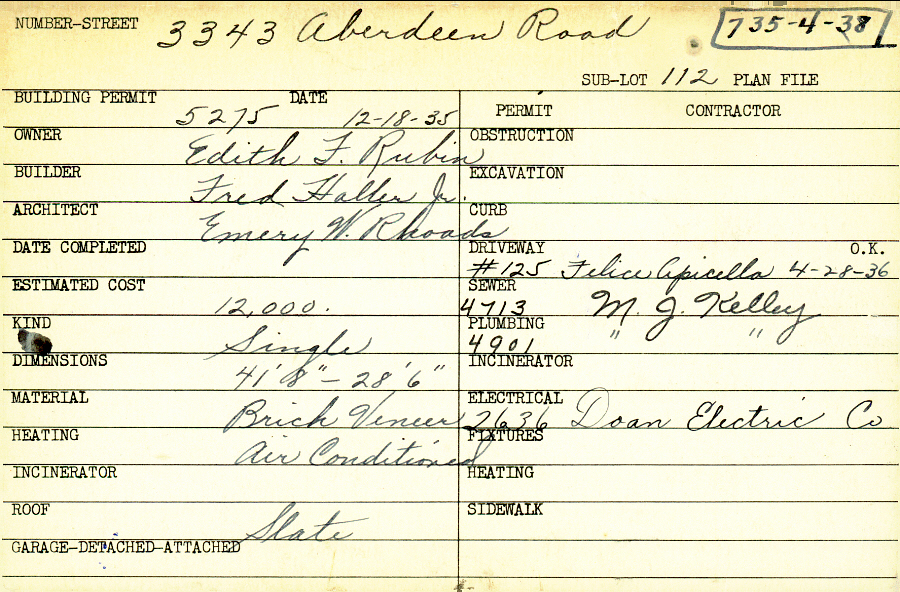 NUMBER-STREET 3343 Aberdeen Road 735-4-38
SUB-LOT 112 PLAN FILE
BUILDING PERMIT DATE PERMIT CONTRACTOR
5275 12-18-35
OWNER Edith F. Rubin OBSTRUCTION
BUILDER Fred Haller Jr. EXCAVATION
ARCHITECT Emery W. Rhoads CURB
DATE COMPLETED DRIVEWAY O.K.
#125 Felice Apicella 4-28-36
ESTIMATED COST 12,000. SEWER
4713 M. J. Kelley
KIND Single PLUMBING
4901 " "
DIMENSIONS 41'8" - 28'6" INCINERATOR
MATERIAL Brick Veneer ELECTRICAL
2636 Doan Electric Co
HEATING Air Conditioned FIXTURES
INCINERATOR HEATING
ROOF Slate SIDEWALK
GARAGE-DETACHED-ATTACHED